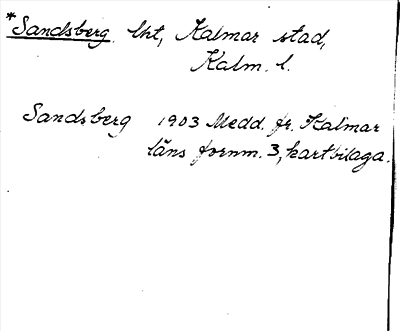 *Sandsberg lht, Kalmar stad,
Kalm. l.
Sandsberg 1903 Medd. fr. Kalmar
läns fornm. 3, kartbilaga.